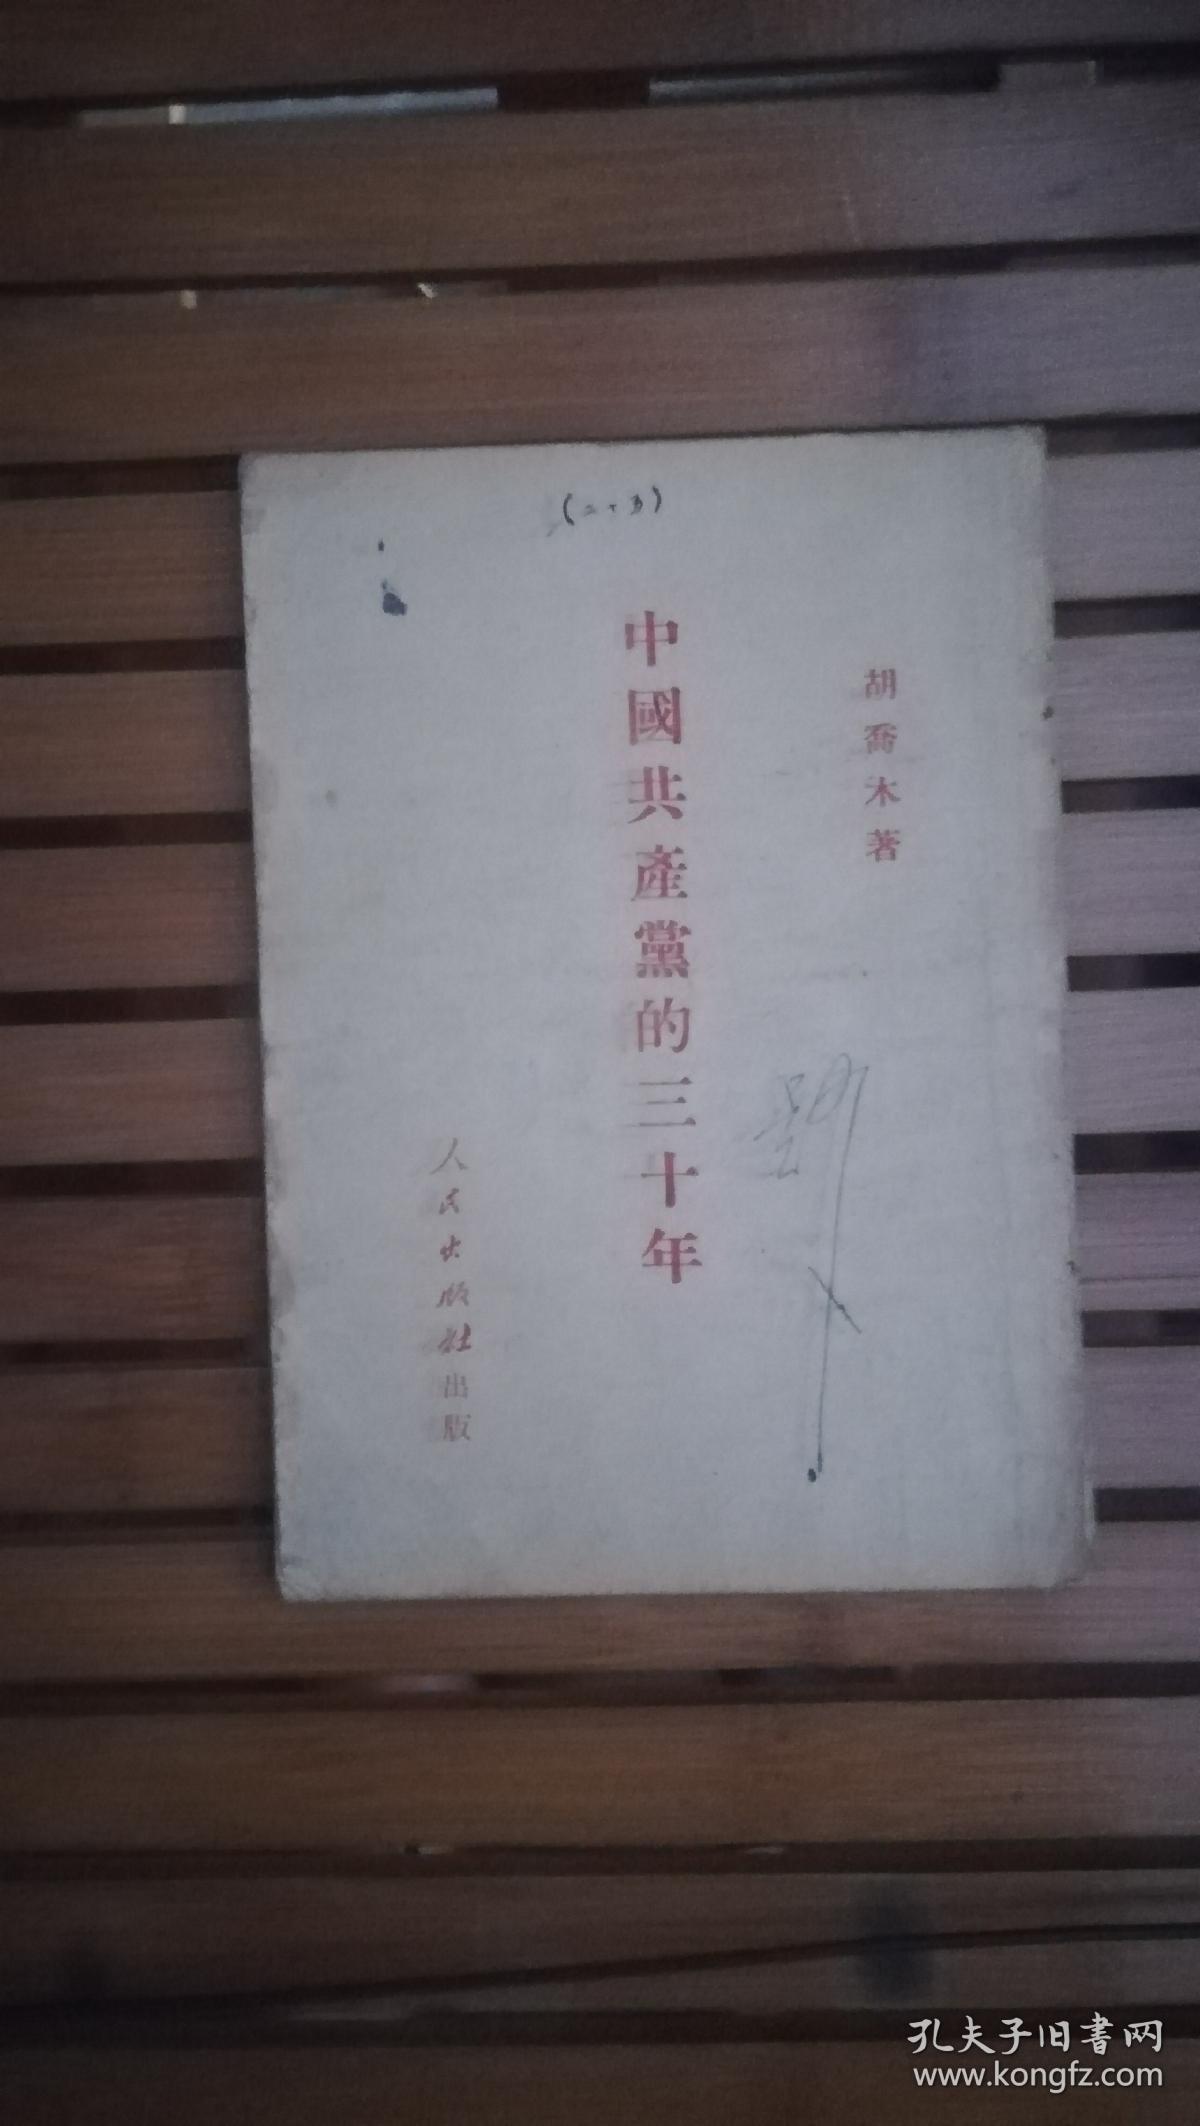 (二十五)
胡喬木著
中國共產黨的三十年
人民出版社出版
孔夫子旧書网
www.kongfz.com